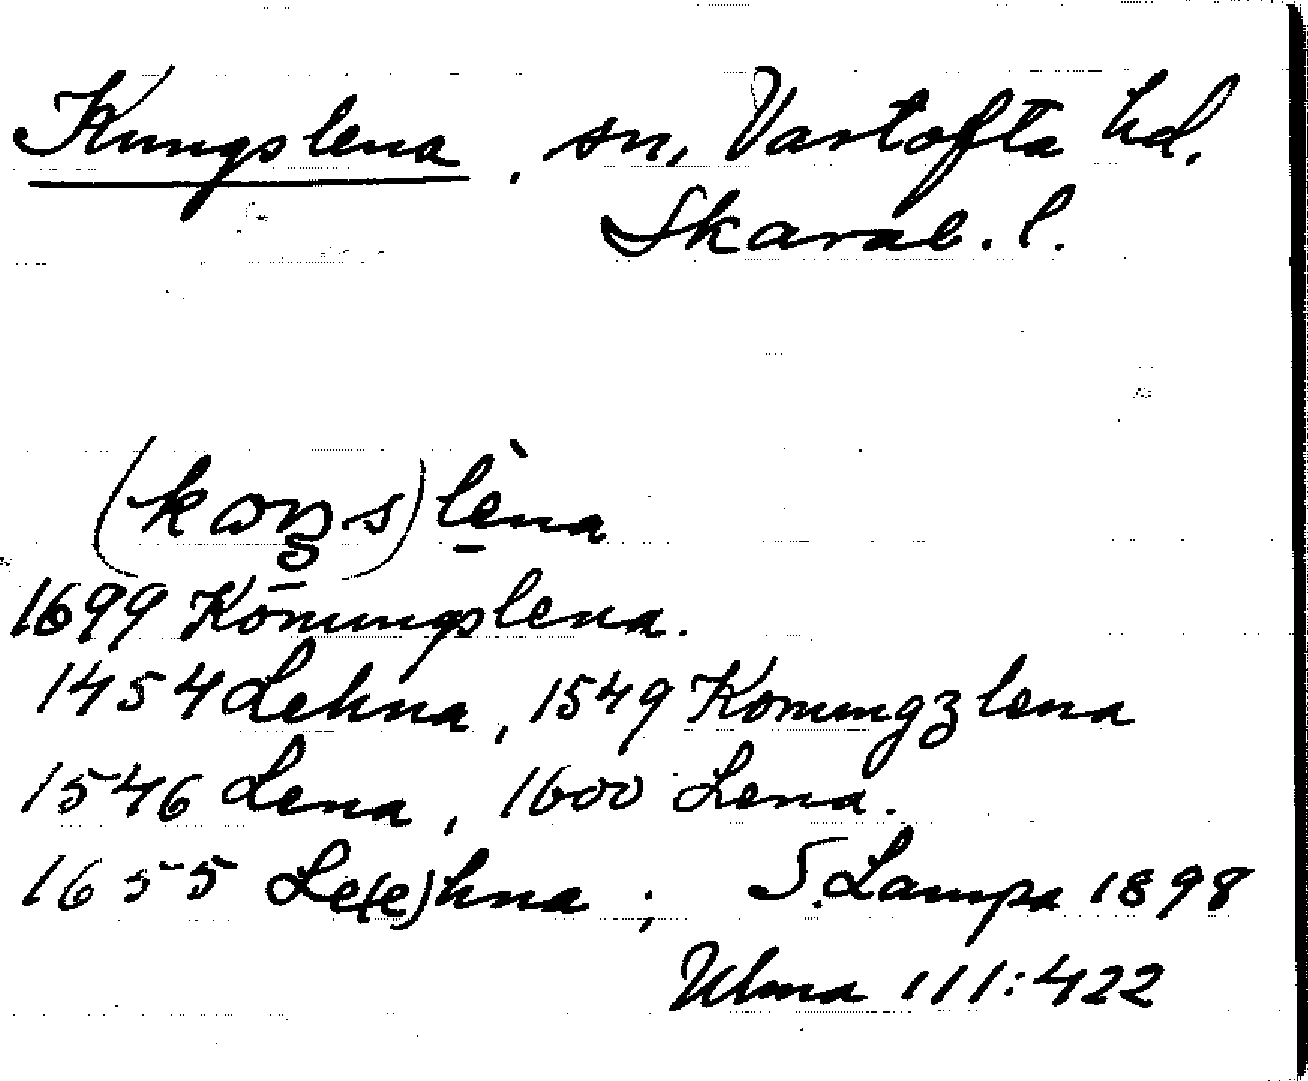 Kungslena, sn, Vartofta hd.
Skarab. l.
(kɷŋs) lèna
1699 Konungslena.
1454 Lehna, 1549 Konungzlena
1546 Lena, 1600 Lena.
1655 Le(e)hna; S. Lampa 1898
Ulma 111:422